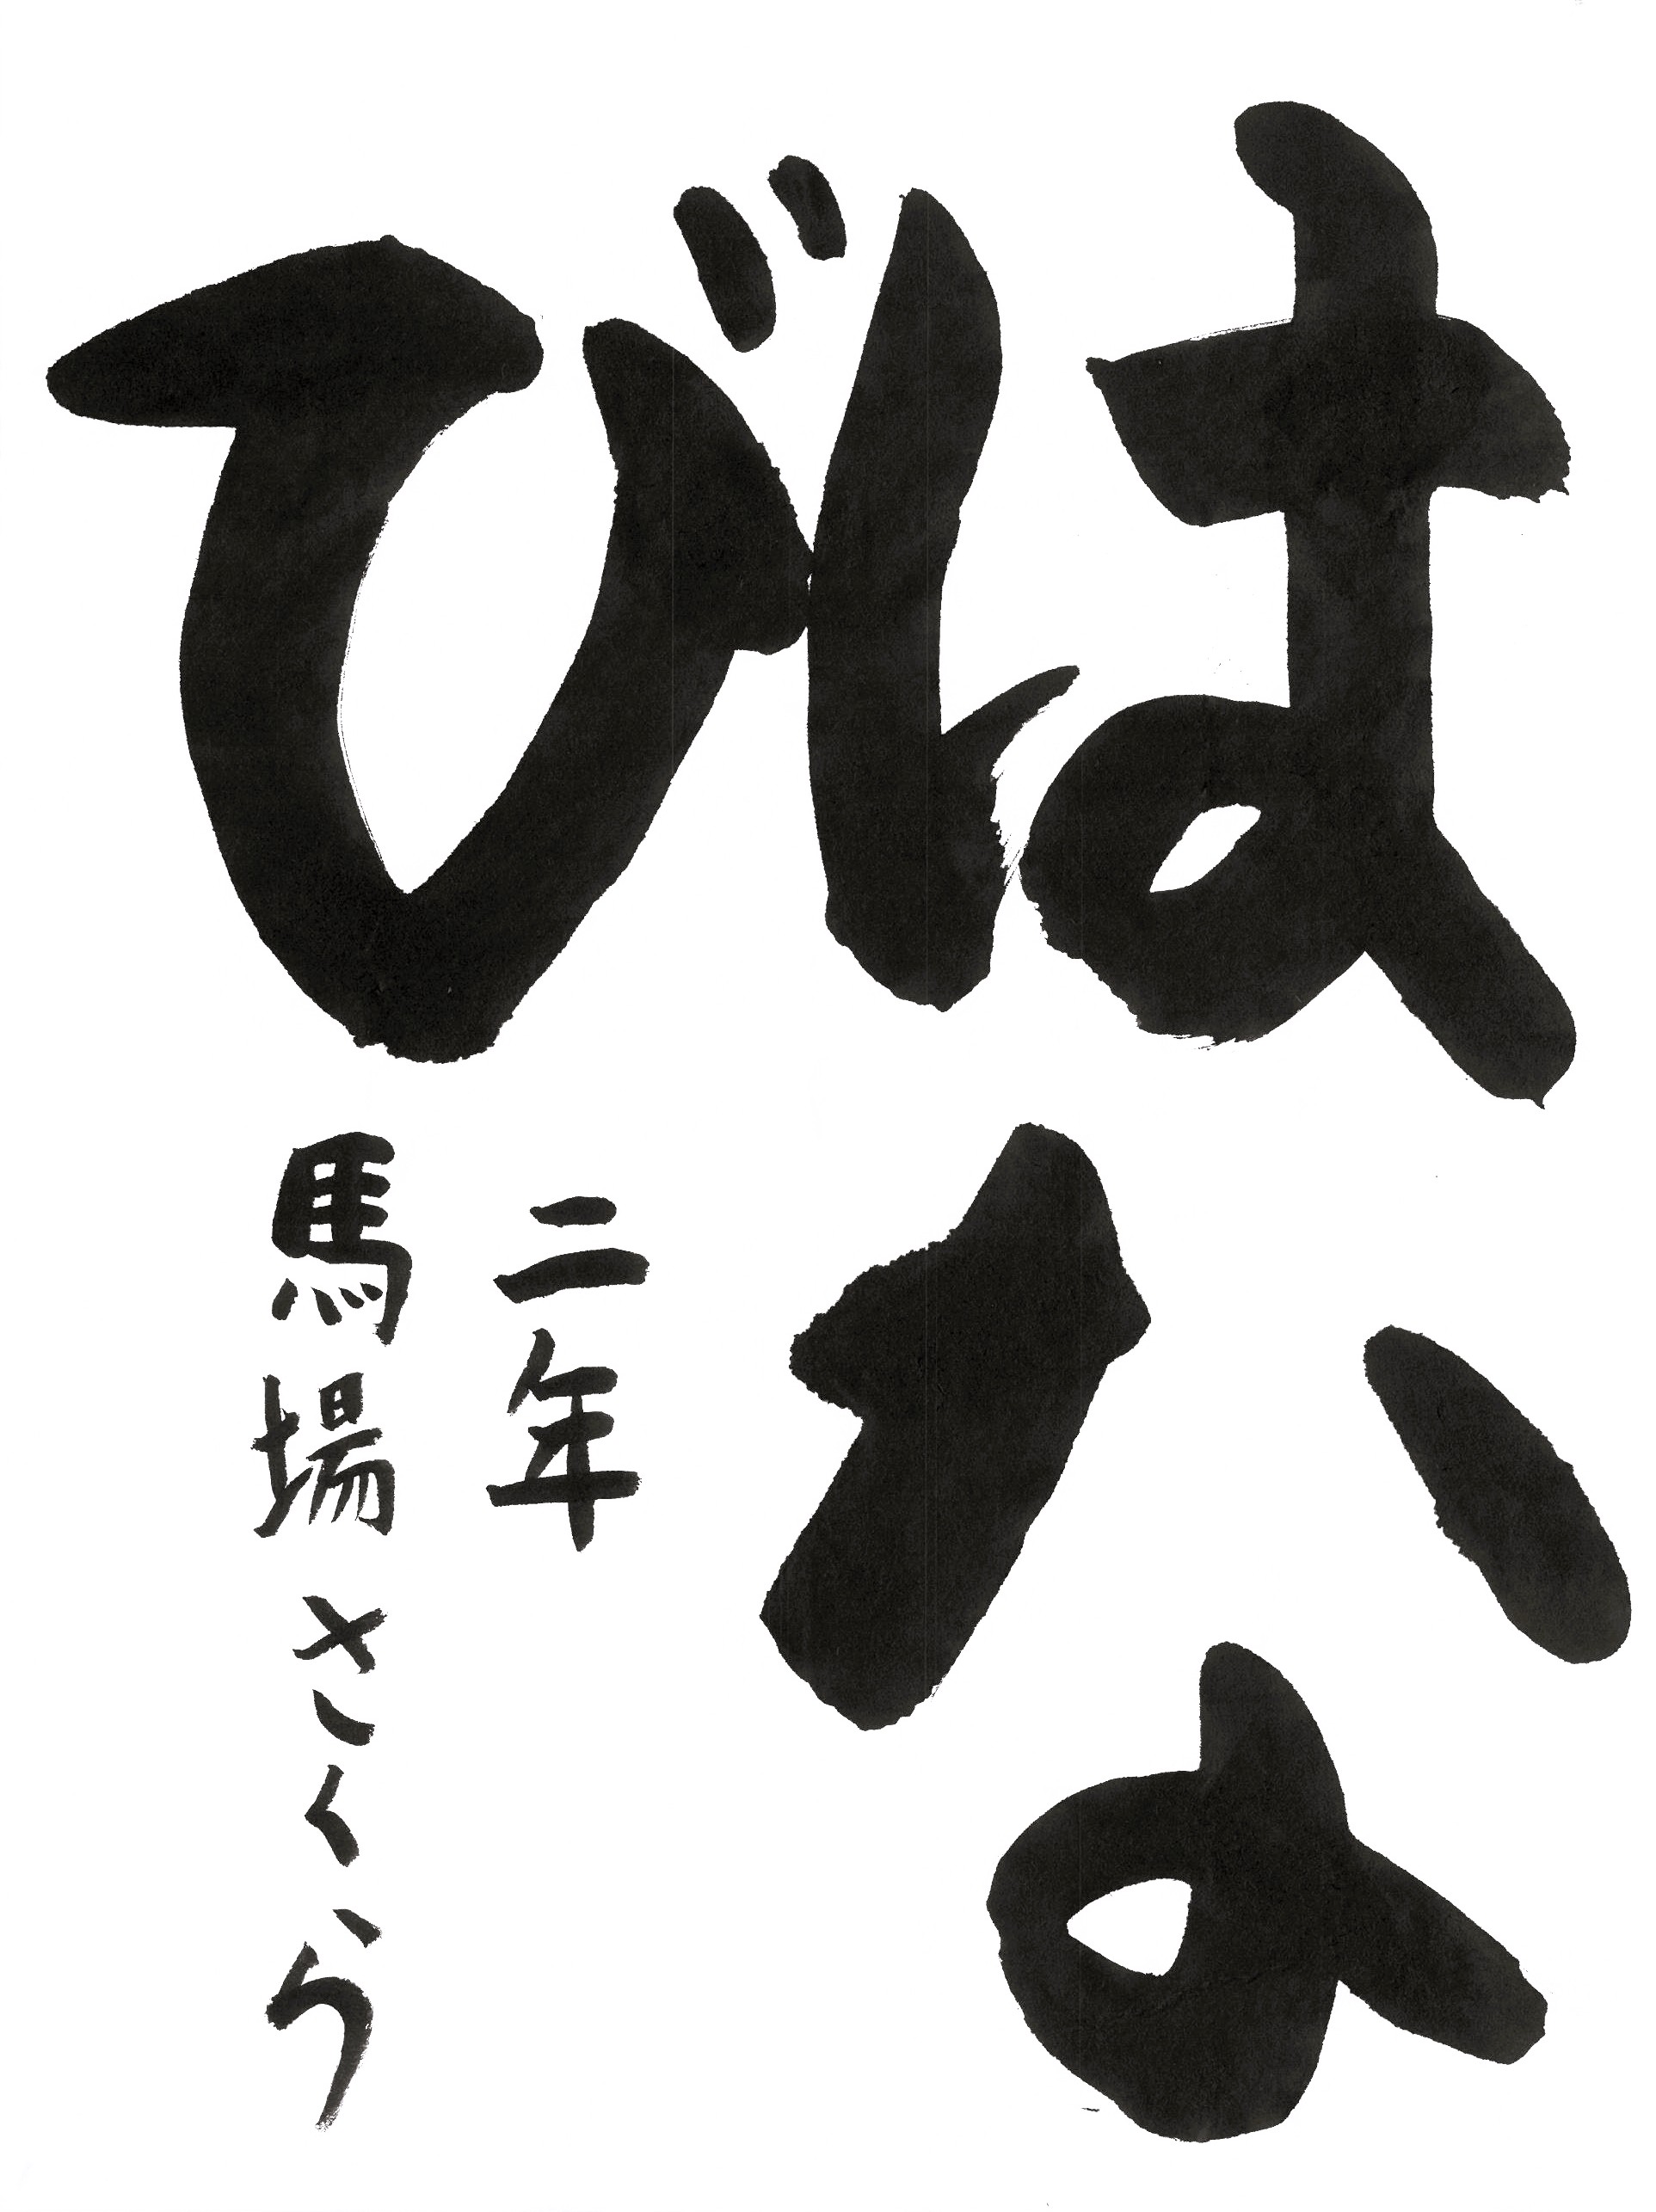 はな
び
二年
馬場さくら